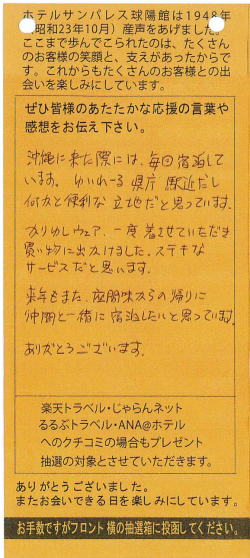 ホテルサンパレス球陽館は1948年
(昭和23年10月）産声をあげました。
ここまで歩んでこられたのは、たくさん
のお客様の笑顔と、支えがあったからで
す。これからもたくさんのお客様との出
会いを楽しみにしています。
ぜひ皆様のあたたかな応援の言葉や
感想をお伝え下さい。
沖縄に来た際には、毎回宿泊して
います。ゆいれーる 県庁 駅近だし
何かと便利な立地だと思っています。
かりゆしウェア、一度着させていただき
買い物に出かけました。ステキな
サービスだと思います。
来年もまた、座間味からの帰りに
仲間と一緒に宿泊したいと思っています。
ありがとうございます。
楽天トラベル・じゃらんネット
るるぶトラベル・ANA@ホテル
へのクチコミの場合もプレゼント
抽選の対象とさせていただきます。
ありがとうございました。
またお会いできる日を楽しみにしています。
お手数ですがフロント横の抽選箱に投函してください。